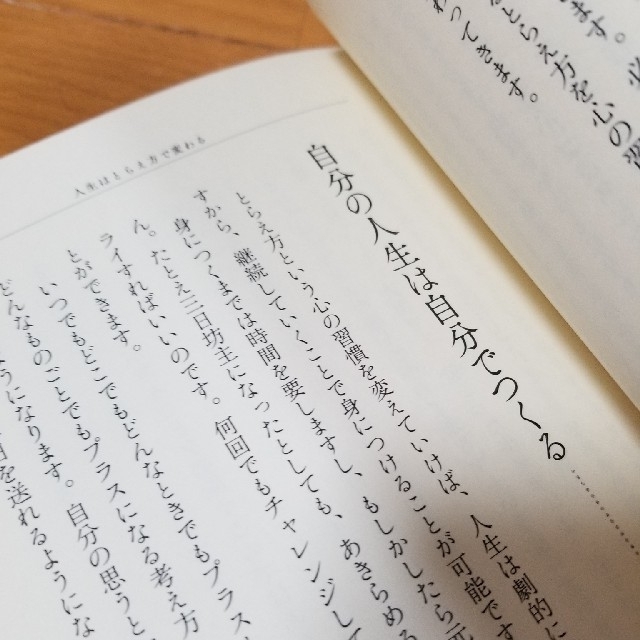 ます。
とらえ方を心の
ってきます。
人生はとらえ方で変わる
自分の人生は自分でつくる
とらえ方という心の習慣を変えていけば、人生は劇的に
すから、継続していくことで身につけることが可能です
身につくまでは時間を要しますし、もしかしたら三
ん。たとえ三日坊主になったとしても、あきらめる
ライすればいいのです。何回でもチャレンジして
とができます。
いつでもどこでもどんなときでもプラス
どんなものごとでもプラスになる考え方
ようになります。自分の思うと
日を送れるようにな